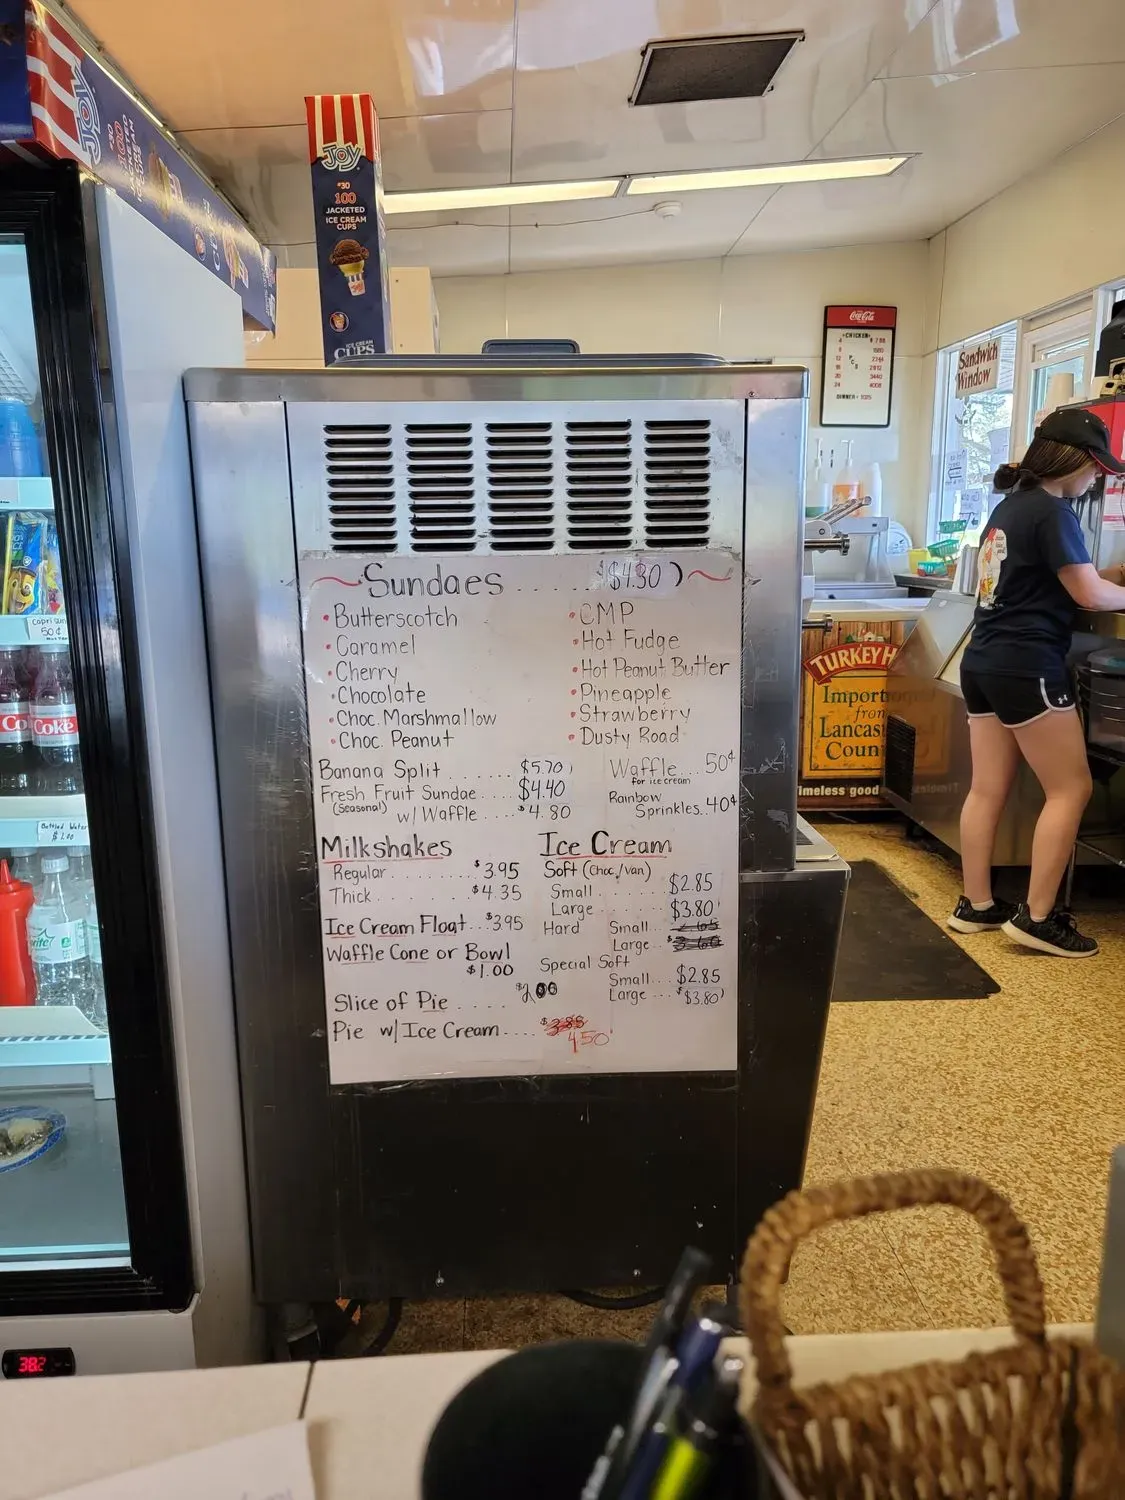 JOY
#30
100
JACKETED
ICE CREAM
CUPS
JOY
#30
100
JACKETED
ICE CREAM
CUPS
ICE CREAM
CUPS
Coca-Cola
CHICKEN $7.88
Sandwich
Window
Sundaes . . . . . $4.30
• Butterscotch
• Caramel
• Cherry
• Chocolate
• Choc. Marshmallow
• Choc. Peanut
• CMP
• Hot Fudge
• Hot Peanut Butter
• Pineapple
• Strawberry
• Dusty Road
Banana Split . . . . . . $5.70
Fresh Fruit Sundae . . . . $4.40
(Seasonal) w/ Waffle . . . . $4.80
Waffle . . . 50¢
for ice cream
Rainbow
Sprinkles . . 40¢
Milkshakes
Regular . . . . . . . . $3.95
Thick . . . . . . . . $4.35
Ice Cream Float . . . $3.95
Waffle Cone or Bowl
$1.00
Slice of Pie . . . .
Pie w/ Ice Cream . . . . $3.88
4.50
Ice Cream
Soft (Choc./Van)
Small . . . . . . $2.85
Large . . . . . . $3.80
Hard Small . . . 2.65
Large . . $3.60
Special Soft
Small . . . $2.85
Large . . . $3.80
TURKEY H
Import
from
Lancas
Coun
imeless good
Capri Sun
50¢
Co
Coke
Bottled Water
$1.00
Sprite
38.2